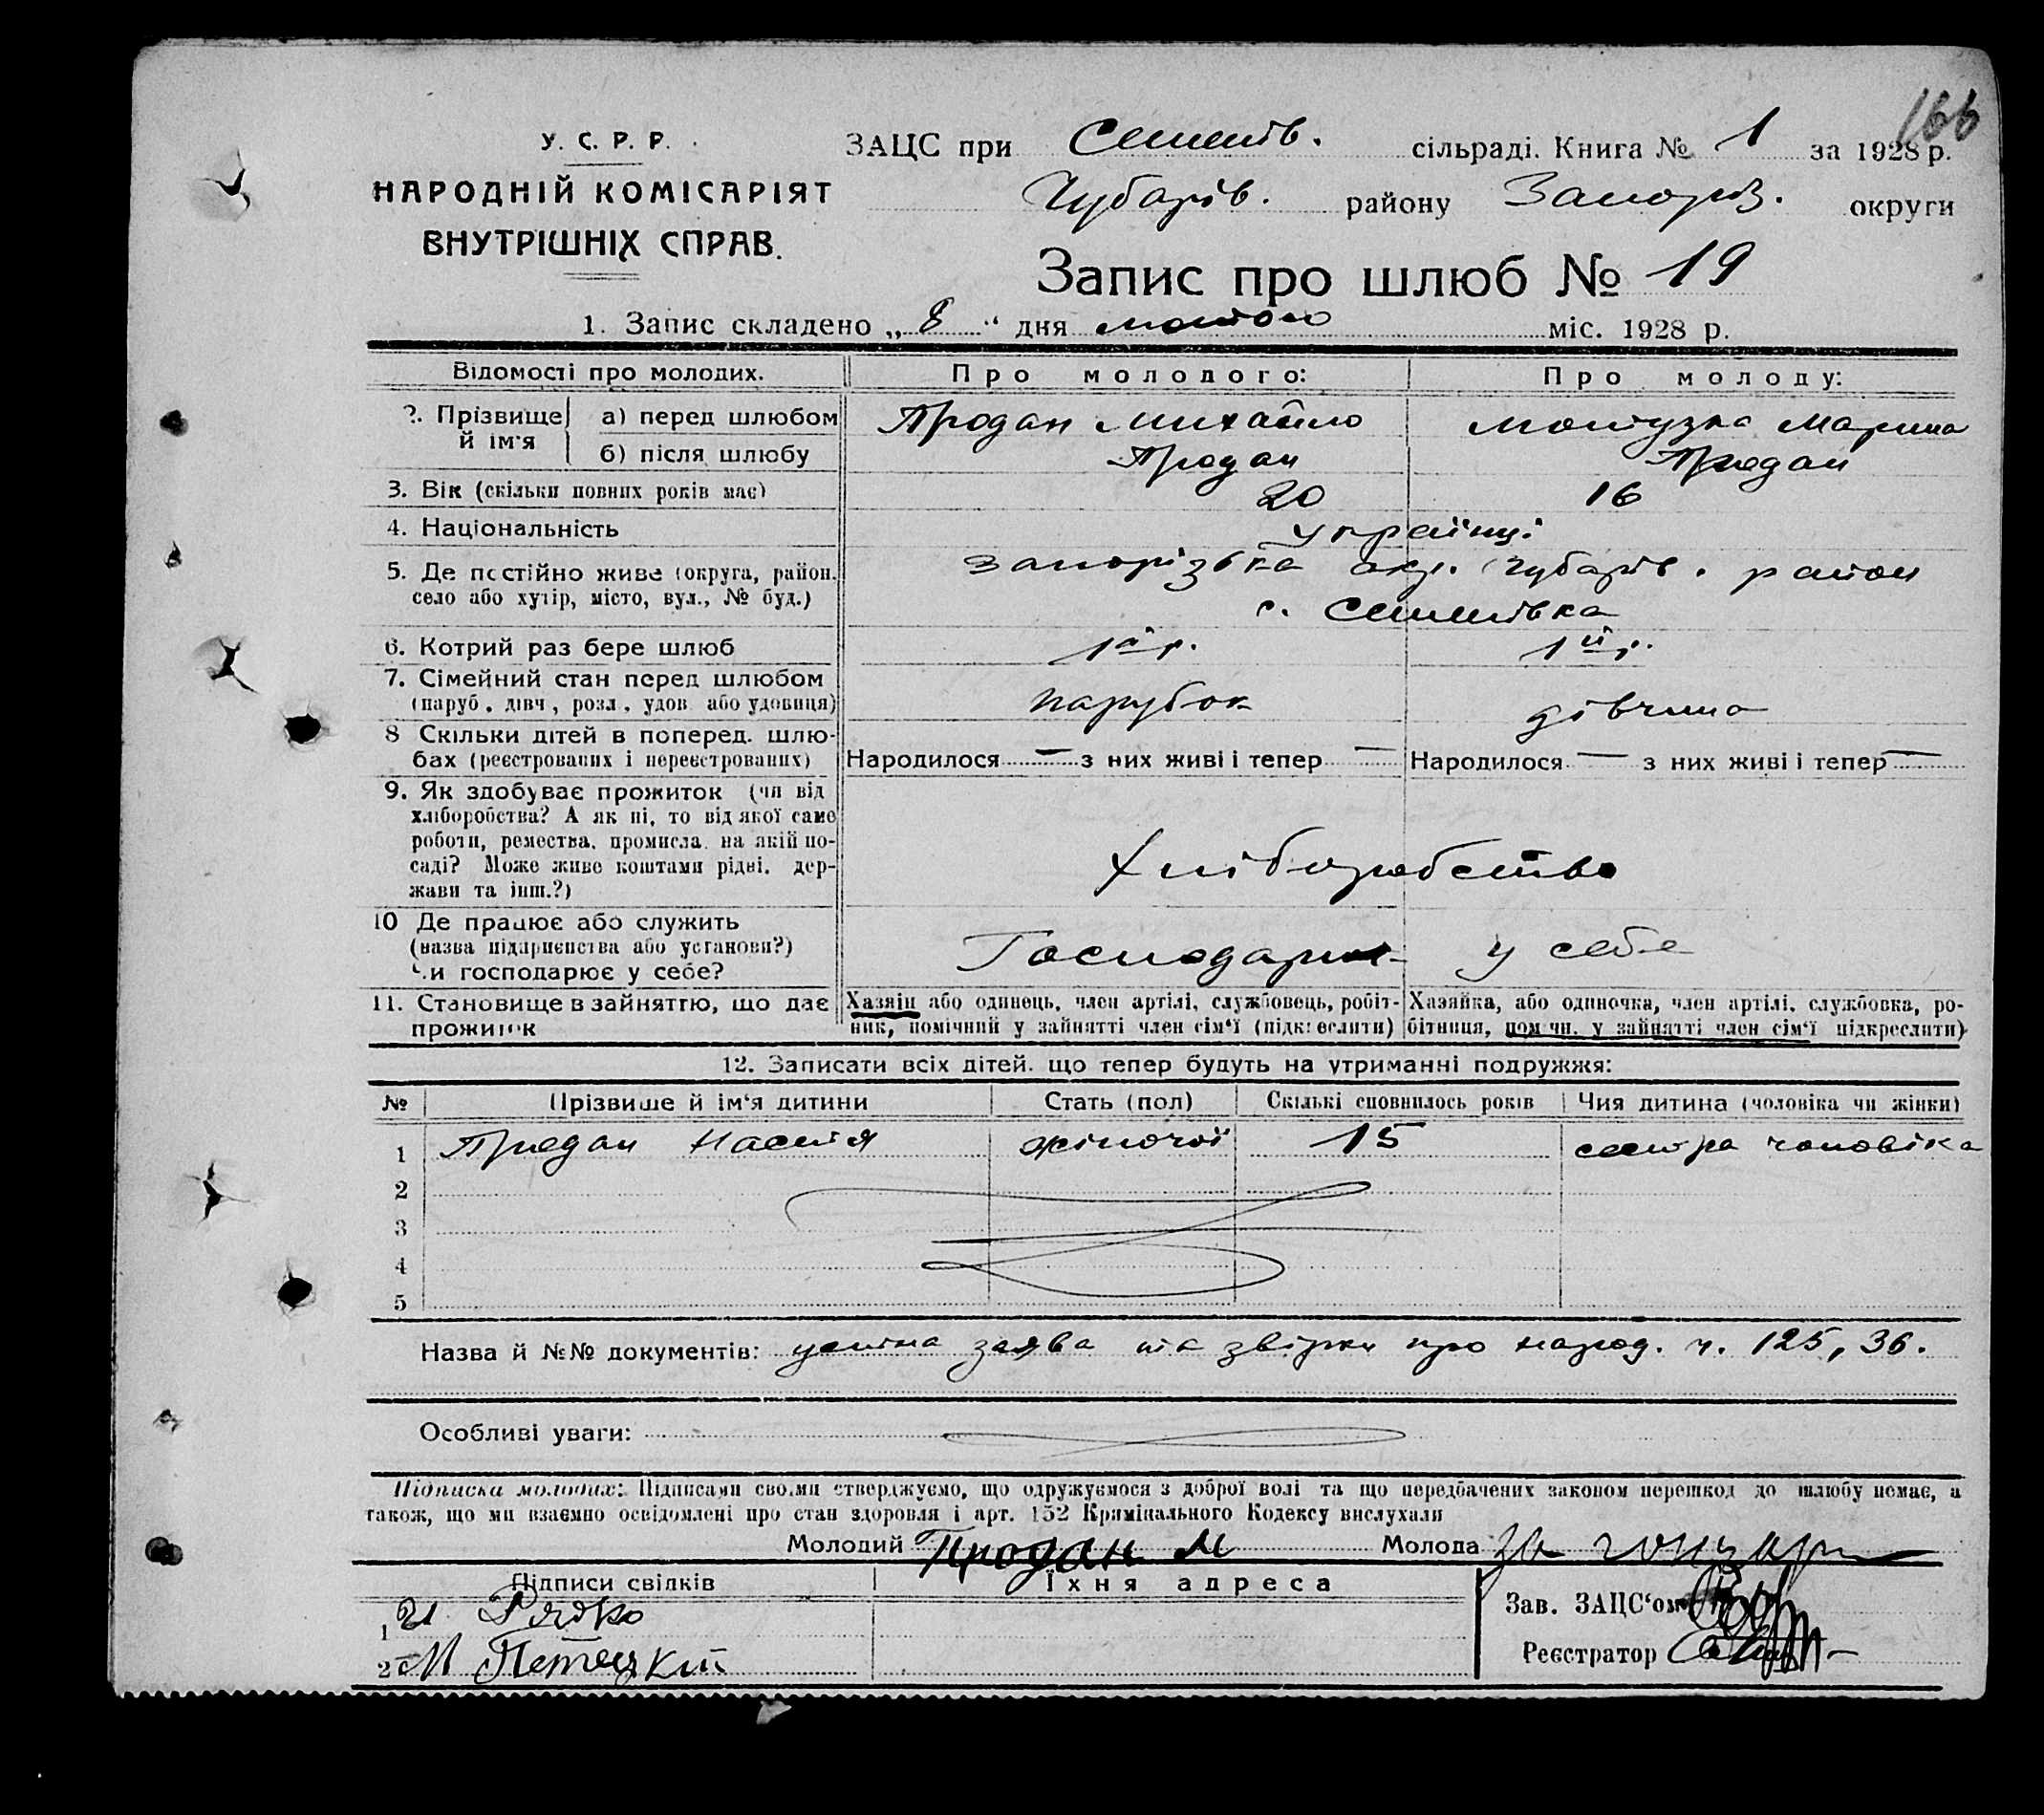 166
У. С. Р. Р.
НАРОДНІЙ КОМІСАРІЯТ
ВНУТРІШНІХ СПРАВ.
ЗАЦС при Семенів. сільраді. Книга № 1 за 1928 р.
Чубарів. району Запоріз. округи
Запис про шлюб № 19
1. Запис складено „ 8 “ дня лютого міс. 1928 р.
Відомості про молодих. Про молодого: Про молоду:
2. Прізвище й ім'я а) перед шлюбом Продан Михайло Мотузка Марина
б) після шлюбу Продан Продан
3. Вік (скільки повних років має) 20 16
4. Національність українці
5. Де постійно живе (округа, район, Запорізька окр. Чубарів. район
село або хутір, місто, вул., № буд.) с. Семенівка
6. Котрий раз бере шлюб 1й р. 1й р.
7. Сімейний стан перед шлюбом
(паруб., дівч., розл., удов. або удовиця) парубок дівчина
8 Скільки дітей в поперед. шлю-
бах (реєстрованих і нереєстрованих) Народилося — з них живі і тепер — Народилося — з них живі і тепер —
9. Як здобуває прожиток (чи від
хліборобства? А як ні, то від якої саме
роботи, ремества, промисла, на якій по-
саді? Може живе коштами рідні, дер-
жави та інш.?) Хліборобство
10 Де працює або служить
(назва підприємства або установи?)
Чи господарює у себе? Господарює у себе
11. Становище в зайняттю, що дає
прожиток
Хазяїн або одинець, член артілі, службовець, робіт-
ник, помічний у зайнятті член сім'ї (підкреслити)
Хазяйка, або одиночка, член артілі, службовка, ро-
бітниця, помічн. у зайнятті член сім'ї підкреслити)
12. Записати всіх дітей, що тепер будуть на утриманні подружжя:
№ Прізвище й ім'я дитини Стать (пол) Скількі сповнилось років Чия дитина (чоловіка чи жінки)
1 Продан Настя жіночої 15 сестра чоловіка
2
3
4
5
Назва й №№ документів: устна заява та звірки про народ. ч. 125, 36.
Особливі уваги:
Підписка молодих: Підписами своїми стверджуємо, що одружуємося з доброї волі та що передбачених законом перешкод до шлюбу немає, а
також, що ми взаємно освідомлені про стан здоровля і арт. 152 Крамінального Кодексу вислухали
Молодий Продан М Молода за
Підписи свідків Їхня адреса
1 Рядко Зав. ЗАЦС'ом
2 М Реєстратор